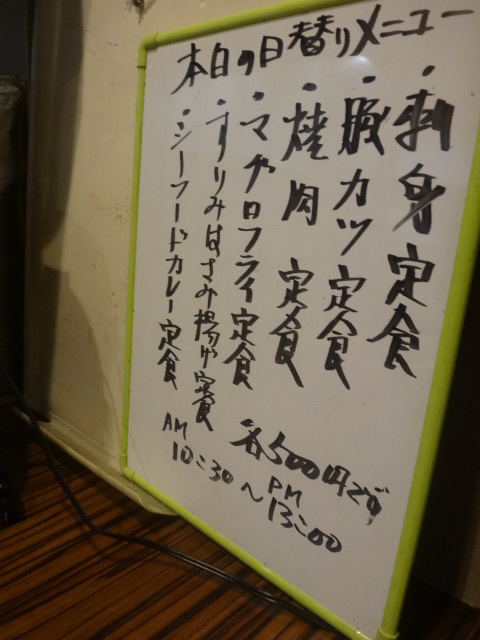 本日の日替りメニュー
・刺身定食
・豚カツ定食
・焼肉定食
・マグロフライ定食
・すりみはさみ揚げ定食
・シーフードカレー定食
・各500円です
AM
10:30~PM
13:00